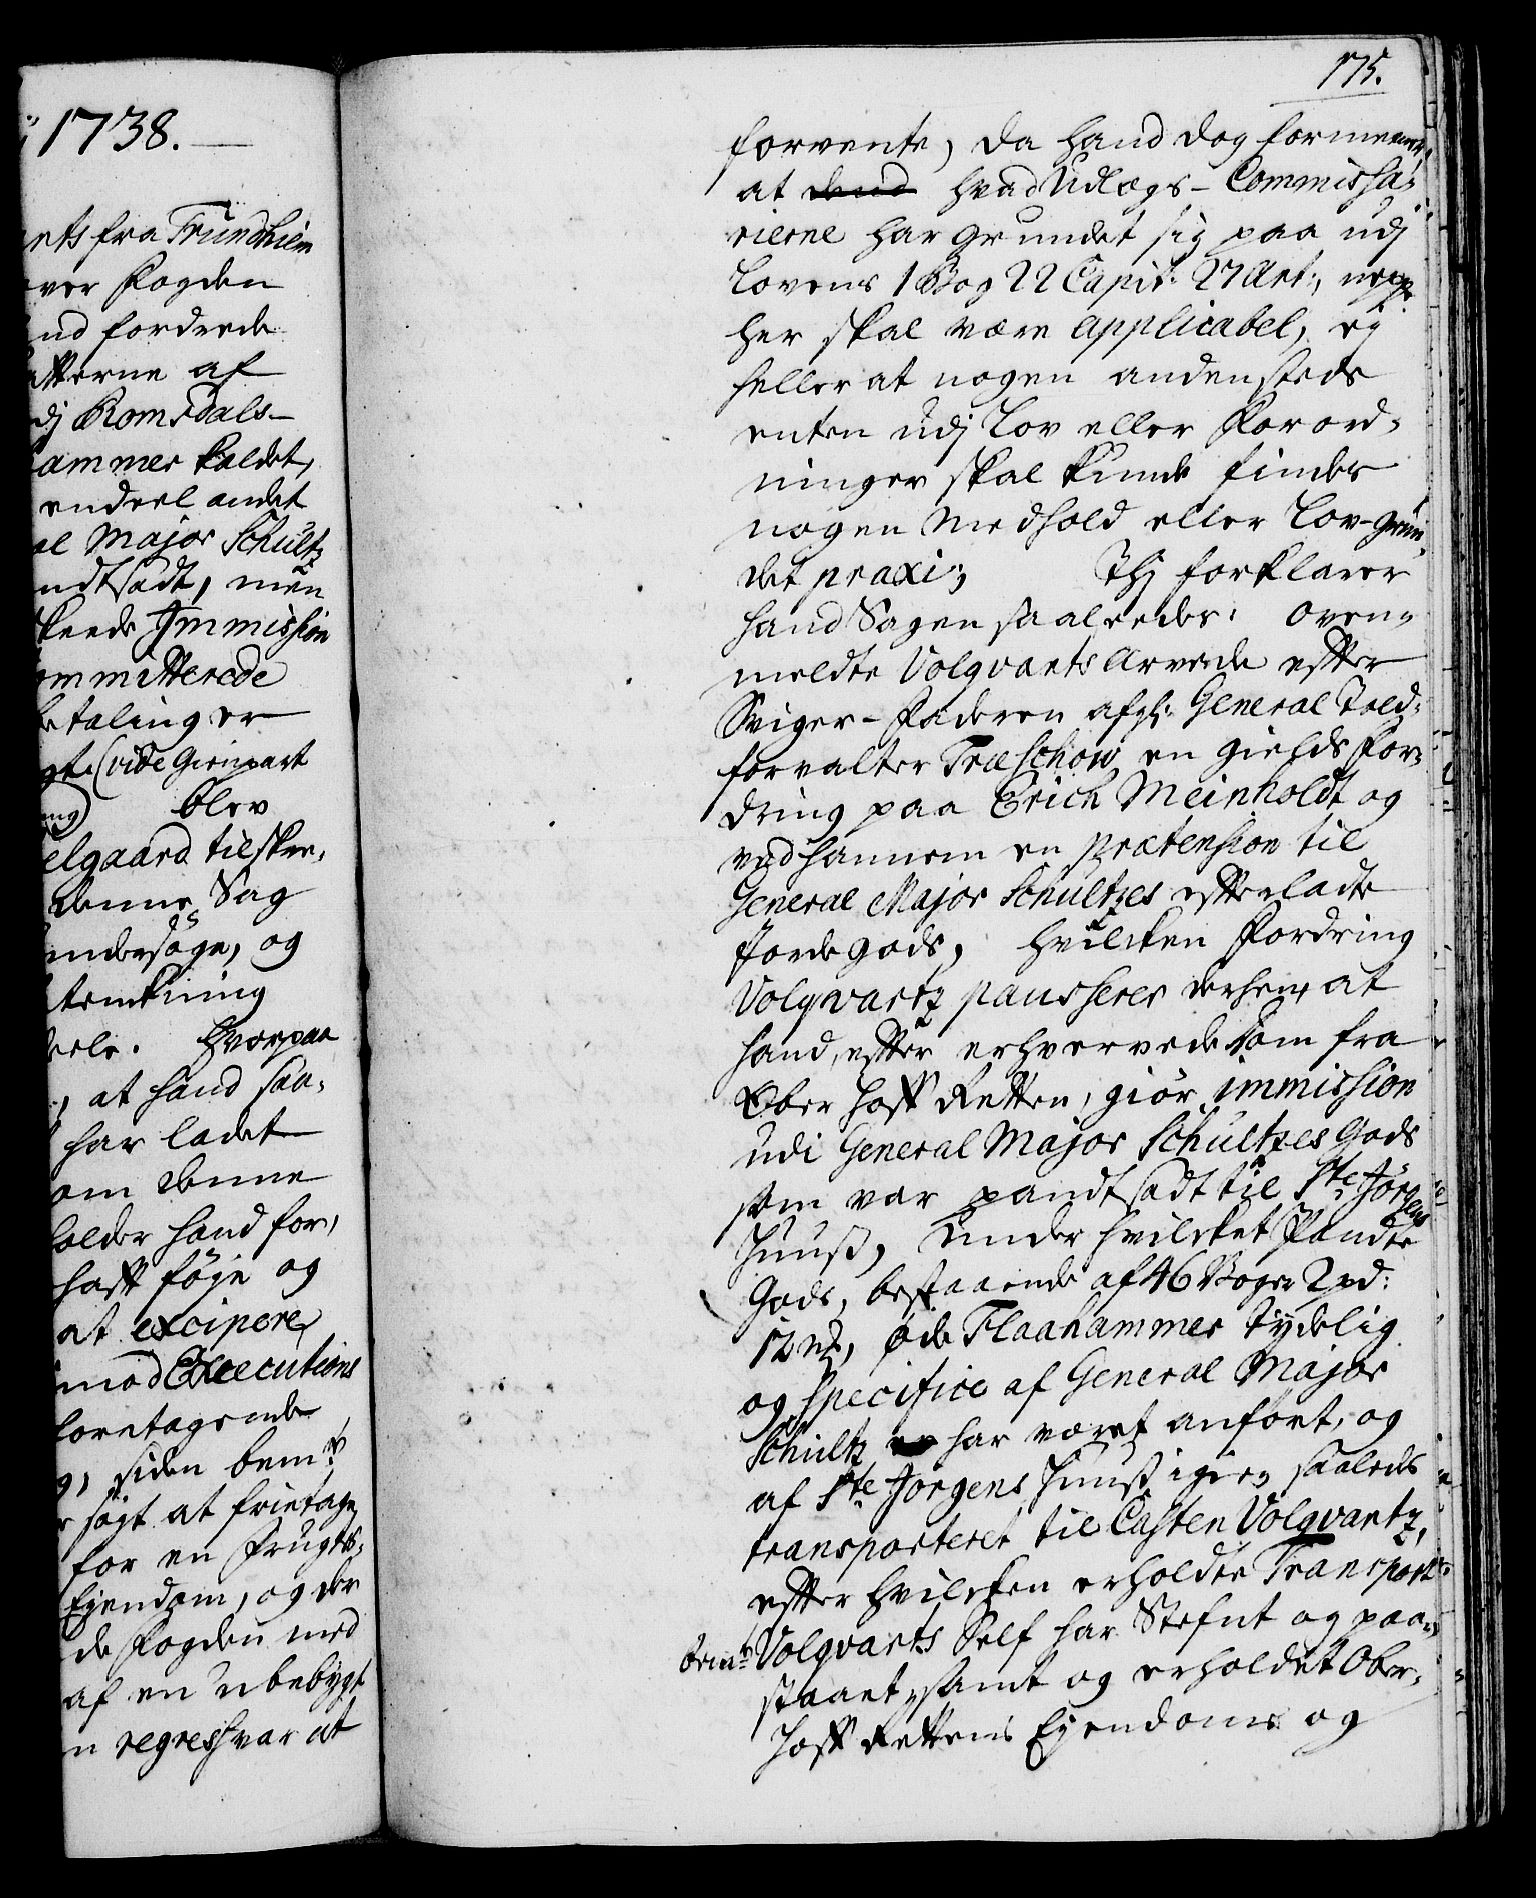 1738.
nts fra Trundhiem
ver Fogden
nd fordrede
tterne af
dj Romsdals-
ammer kaldet,
endeel andet
al Major Schultz
ndtsadt, men
skeede Immission
ommitterede
betaling er
gt. (vide Gienpart
ing) blev
elgaard tilskre-
denne Sag
undersøge, og
tænkning
deele. Hvorpaa
, at hand saa-
har ladet
om denne
holder hand for,
hafft føje og
at excipere
imod Executions
foretagende
g, siden bemte
r søgt at fritage
for en Frugtes-
Ejendom, og der
de Fogden med
af en ubebygt
n regres hvar at
175.
forvente, da hand dog formeener,
at dend hvad Udlægs-Commissa-
rierne har grundet sig paa udj
Lovens 1 Bog 22 Capit: 27 Art:, neppe
her skal være applicabel, ej
heller at nogen andensteds
enten udj Lov eller Forord-
ninger skal kunde findes
nogen Medhold eller Lov-grun-
det praxi; Thj forklarer
hand Sagen saaleedes: Oven-
meldte Volqvarts Arvede efter
Sviger-Faderen afgl: General Told-
forvalter Træschow en Gields For-
dring paa Erich Meinholdt og
ved hannem en prætension til
General Major Schultzes efterladte
Jordegods, hvilcken Fordring
Volqvartz pousserer derhen, at
hand, efter erhvervede Dom fra
Ober Hoff Retten, giør immission
udi General Major Schultzes Gods
som var pandtsadt til Ste Jørgens
Huuss, under hvilcket Pandte
Gods, bestaaende af 46 Voger 2 pd:
12 mk, øde Flaahammer tydelig
og specifice af General Major
Schultz er har været anført, og
af Ste Jørgens Huuss igien saaleds
transporteret til Casten Volqvartz,
efter hvilcken erholdte Transport
bemte Volqvarts Self har Stefnt og paa-
staaet, samt og erholdet Ober-
Hoff Rettens Ejendoms og